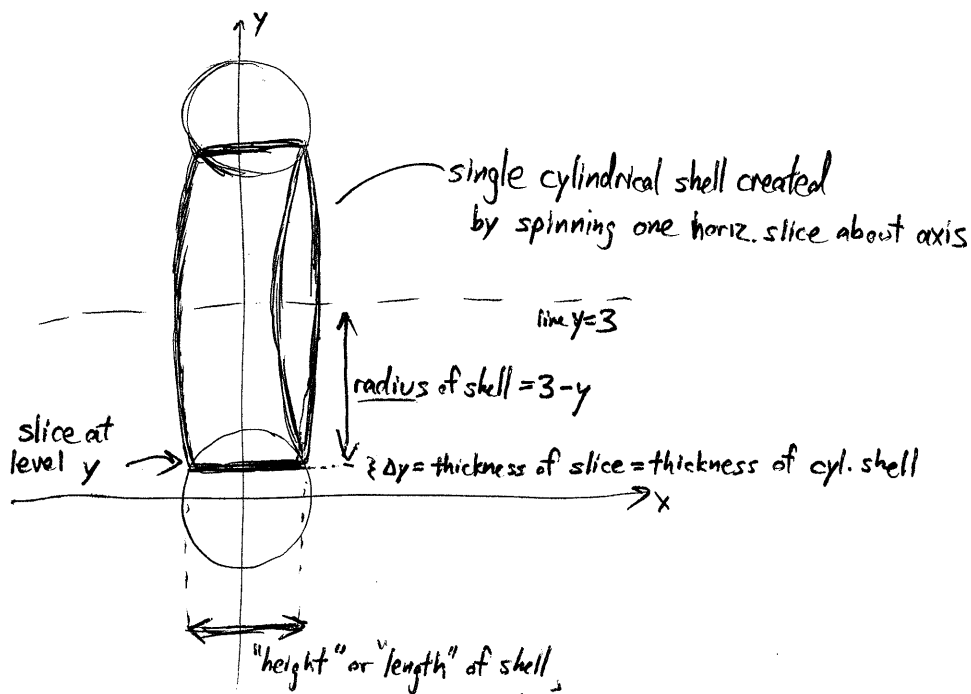 Y
single cylindrical shell created
by spinning one horiz. slice about axis
line y=3
radius of shell = 3-y
slice at
level y
} Δy = thickness of slice = thickness of cyl. shell
X
"height" or "length" of shell